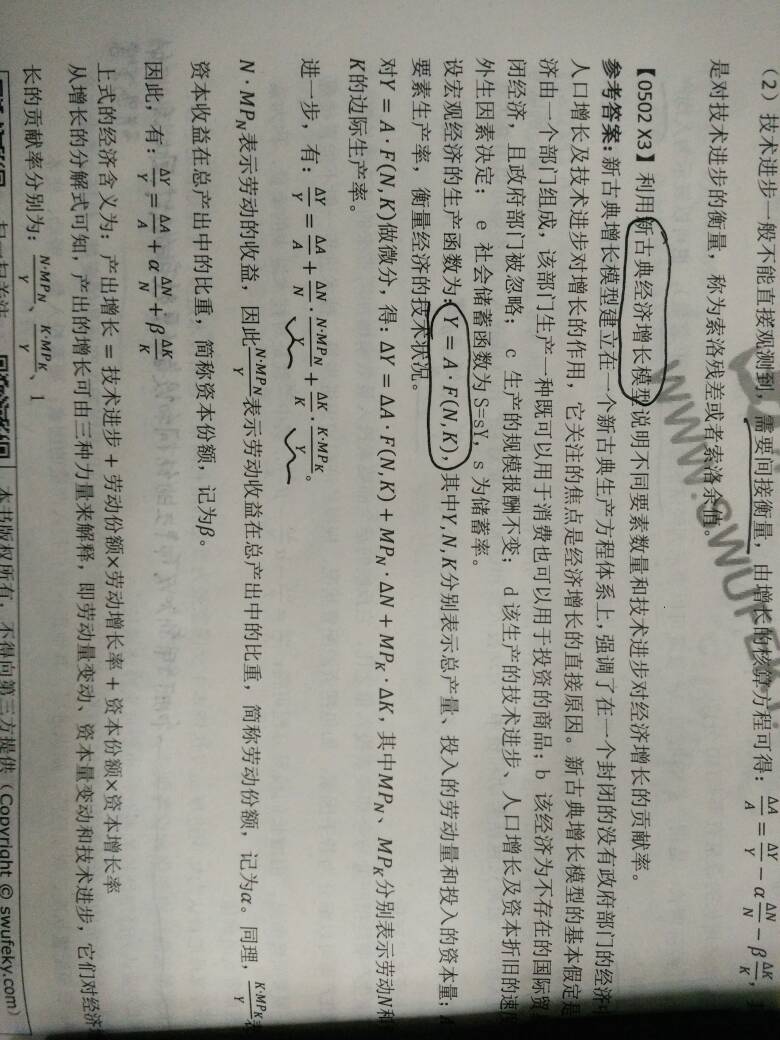 （2）技术进步一般不能直接观测到，需要间接衡量，由增长的核算方程可得：ΔA/A = ΔY/Y − αΔN/N − βΔK/K，
是对技术进步的衡量，称为索洛残差或者索洛余值。
【0502 X3】利用新古典经济增长模型说明不同要素数量和技术进步对经济增长的贡献率。
参考答案：新古典增长模型建立在一个新古典生产方程体系上，强调了在一个封闭的没有政府部门的经济中
人口增长及技术进步对增长的作用，它关注的焦点是经济增长的直接原因。新古典增长模型的基本假定是
济由一个部门组成，该部门生产一种既可以用于消费也可以用于投资的商品；b 该经济为不存在的国际贸
闭经济，且政府部门被忽略；c 生产的规模报酬不变；d 该生产的技术进步、人口增长及资本折旧的速
外生因素决定；e 社会储蓄函数为 S=sY，s 为储蓄率。
设宏观经济的生产函数为：Y = A·F(N,K)，其中Y,N,K分别表示总产量、投入的劳动量和投入的资本量；
要素生产率，衡量经济的技术状况。
对Y = A·F(N,K)做微分，得：ΔY = ΔA·F(N,K) + MP_N·ΔN + MP_K·ΔK，其中MP_N、MP_K分别表示劳动N和
K的边际生产率。
进一步，有：ΔY/Y = ΔA/A + ΔN/N · N·MP_N/Y + ΔK/K · K·MP_K/Y。
N·MP_N表示劳动的收益，因此N·MP_N/Y表示劳动收益在总产出中的比重，简称劳动份额，记为α。同理，K·MP_K/Y表
资本收益在总产出中的比重，简称资本份额，记为β。
因此，有：ΔY/Y = ΔA/A + αΔN/N + βΔK/K
上式的经济含义为：产出增长 = 技术进步 + 劳动份额×劳动增长率 + 资本份额×资本增长率
从增长的分解式可知，产出的增长可由三种力量来解释，即劳动量变动、资本量变动和技术进步，它们对经济
长的贡献率分别为：N·MP_N/Y、K·MP_K/Y、1
本书版权所有，不得向第三方提供（Copyright © swufeky.com）